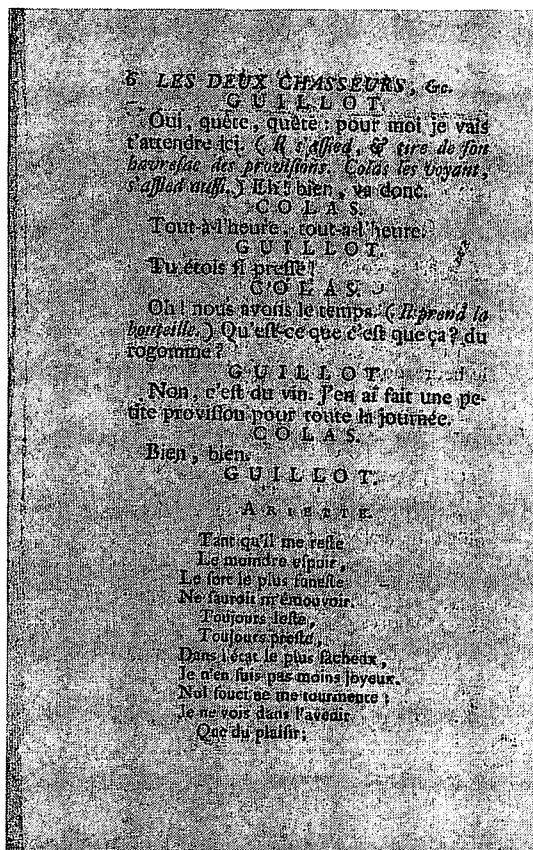 6 LES DEUX CHASSEURS, &c.
GUILLOT.
Oui, quête, quête : pour moi je vais
t'attendre ici. (Il s'aſſied, & tire de ſon
havreſac des proviſions. Colas les voyant,
s'aſſied auſſi.) Eh ! bien, va donc.
COLAS.
Tout-à-l'heure, tout-à-l'heure.
GUILLOT.
Tu étois ſi preſſé !
COLAS.
Oh ! nous avons le temps. (Il prend la
bouteille.) Qu'eſt-ce que c'eſt que ça ? du
rogomme ?
GUILLOT.
Non, c'eſt du vin. J'en ai fait une pe-
tite proviſion pour toute la journée.
COLAS.
Bien, bien.
GUILLOT.
ARIETTE.
Tant qu'il me reſte
Le moindre eſpoir,
Le ſort le plus funeſte
Ne ſauroit m'émouvoir.
Toujours leſte,
Toujours
Dans l'état le plus fâcheux,
Je n'en ſuis pas moins joyeux.
Nul ſouci ne me tourmente ;
Je ne vois dans l'avenir
Que du plaiſir ;